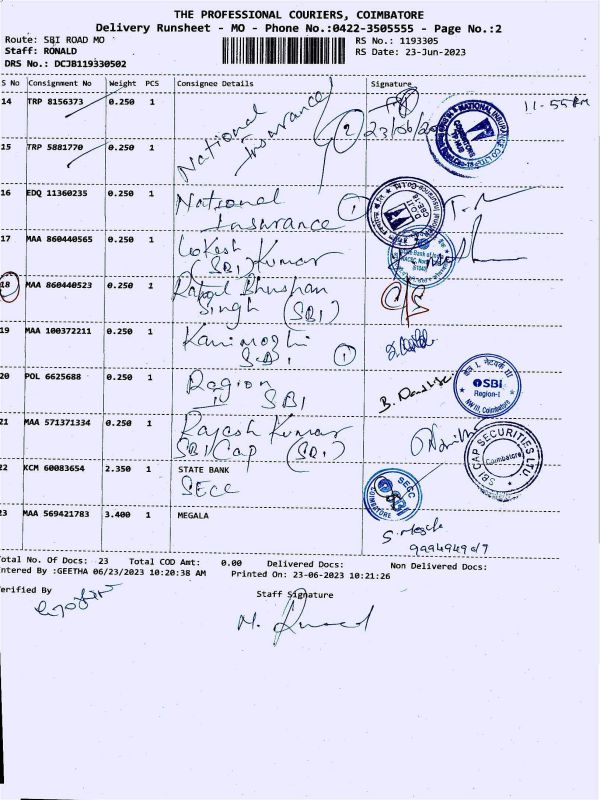 THE PROFESSIONAL COURIERS, COIMBATORE
Delivery Runsheet - MO - Phone No.:0422-3505555 - Page No.:2
Route: SBI ROAD MO RS No.: 1193305
Staff: RONALD RS Date: 23-Jun-2023
DRS No.: DCJB119330502
S No Consignment No Weight PCS Consignee Details Signature
14 TRP 8156373 0.250 1 National Insurance 2 23/06/20 11-55 AM
15 TRP 5881770 0.250 1
16 EDQ 11360235 0.250 1 National Insurance 1
17 MAA 860440565 0.250 1 Lokesh Kumar (SBI)
18 MAA 860440523 0.250 1 Rahul Bhushan Singh (SBI)
19 MAA 100372211 0.250 1 Kanimozhi SBI 1
20 POL 6625688 0.250 1 Region IV SBI SBI Region-I
21 MAA 571371334 0.250 1 Rajesh Kumar SBI Cap (SBI) SBI CAP SECURITIES LTD. Coimbatore
22 KCM 60083654 2.350 1 STATE BANK
SECC SECC COIMBATORE
23 MAA 569421783 3.400 1 MEGALA
Total No. Of Docs: 23 Total COD Amt: 0.00 Delivered Docs: Non Delivered Docs:
ntered By :GEETHA 06/23/2023 10:20:38 AM Printed On: 23-06-2023 10:21:26
erified By Staff Signature